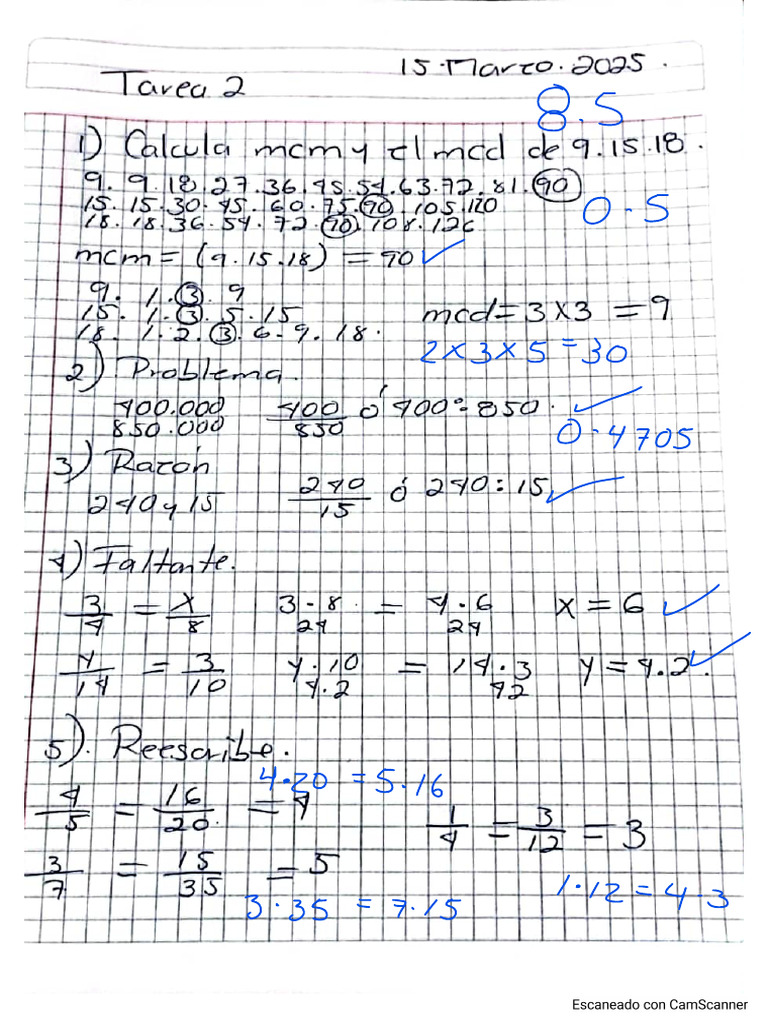 15. Marzo. 2025.
Tarea 2
8.5
1) Calcula mcm y el mcd de 9.15.18.
9. 9.18.27.36.45.54.63.72.81.90
15. 15.30.45.60.75.90.105.120
0.5
18. 18.36.54.72.90.108.126
mcm = (9.15.18) = 90 ✓
9. 1.3.9
15. 1.3.5.15
mcd = 3 x 3 = 9
18. 1.2.3.6.9.18.
2 x 3 x 5 = 30
2) Problema.
400.000 400/850 ó 400:850. ✓
850.000
0.4705
3) Razón
240 y 15 240/15 ó 240:15 ✓
4) Faltante.
3/4 = x/8 3.8 = 4.6 x = 6 ✓
24 24
y/14 = 3/10 y.10 = 14.3 y = 4.2. ✓
4.2 42
5). Reescribe.
4.20 = 5.16
4/5 = 16/20 = 4
1/4 = 3/12 = 3
3/7 = 15/35 = 5
1.12 = 4.3
3.35 = 7.15
Escaneado con CamScanner